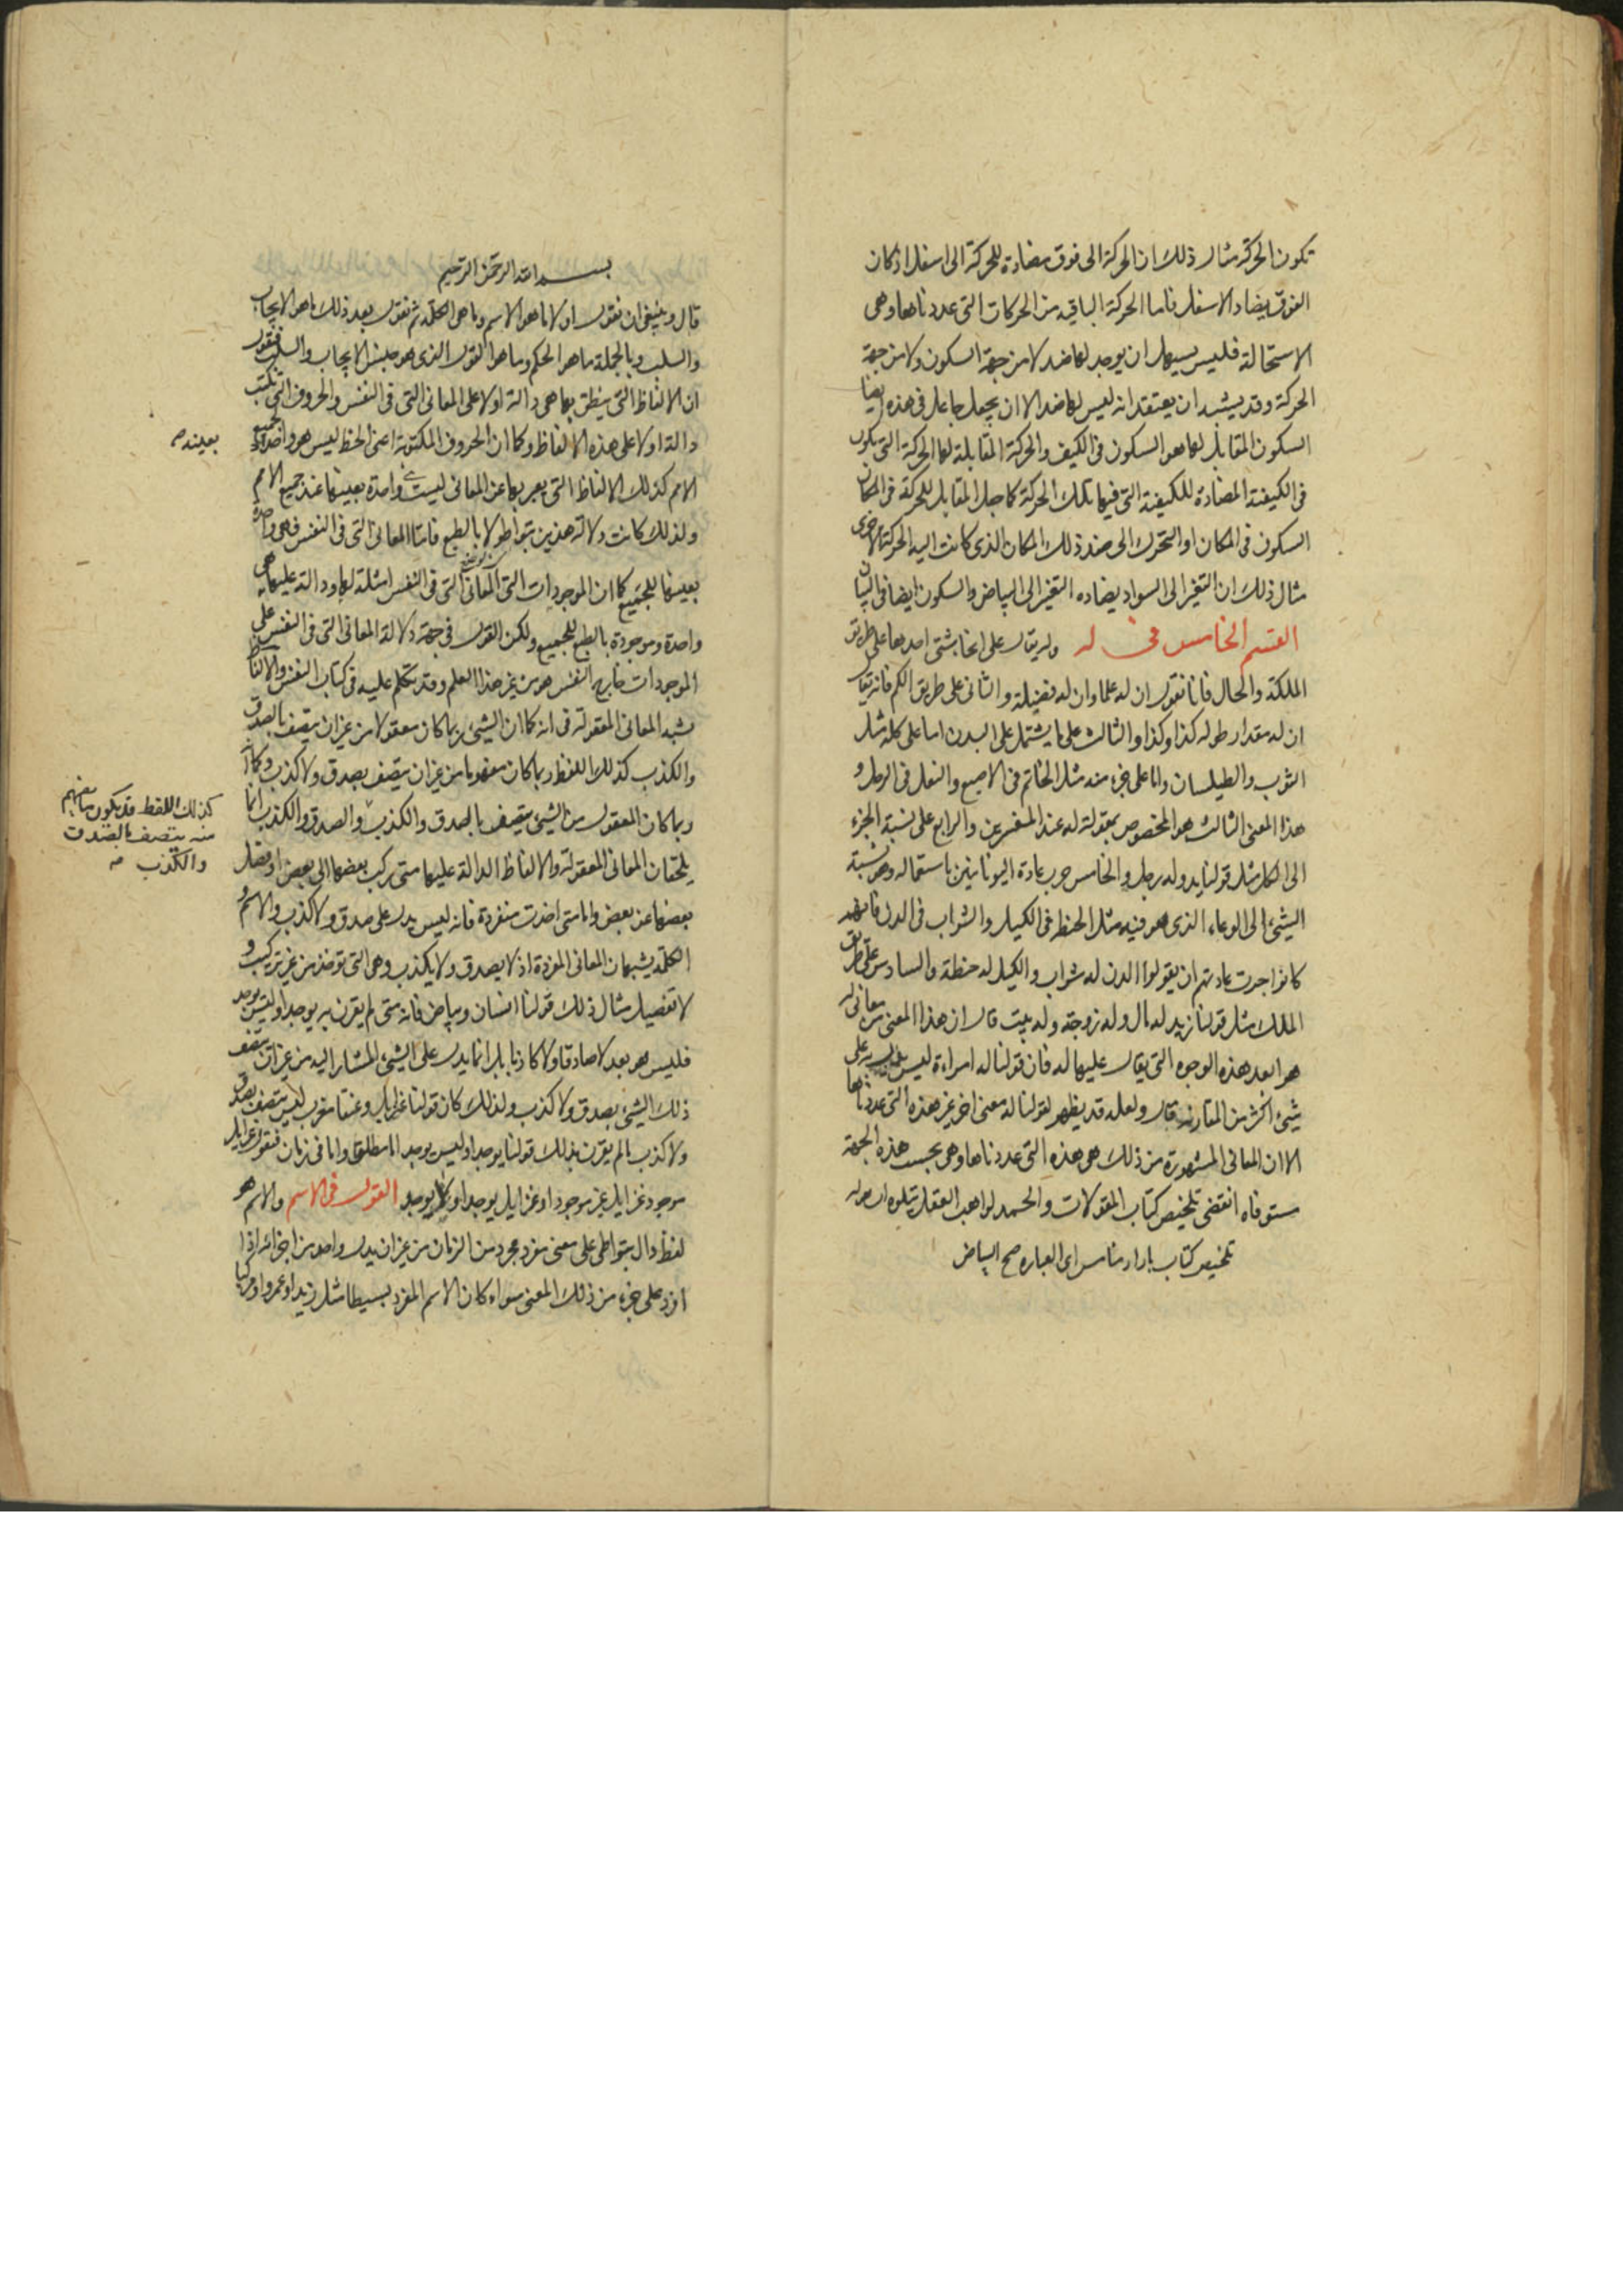 تكون الحركة مثال ذلك ان الحركة الى فوق مضادة للحركة الى اسفل اذ كان
الفوق يضاد الاسفل فاما الحركة الباقيه من الحركات التى عددناها وهى
الاستحالة فليس يسهل ان يوجد لها ضد لا من جهة السكون ولا من جهة
الحركة وقد يشبه ان يعتقد انه ليس لها ضد الا ان يجعل جاعل فى هذه ايضا
السكون المقابل لها هو السكون فى الكيف والحركة المقابلة لها الحركة التى تكون
فى الكيفية المضادة للكيفية التى فيها تلك الحركة كما جعل المقابل للحركة فى المكان
السكون فى المكان او التحرك الى ضد ذلك المكان الذى كانت اليه الحركة الاخرى
مثال ذلك ان التغير الى السواد يضاده التغير الى البياض والسكون ايضا فى البياض
القسم الخامس فى له وله يقال على انحا شتى احدها على طريق
الملكة والحال فانا نقول ان له علما وان له فضيلة والثانى على طريق الكم فانه يقال
ان له مقدار طوله كذا وكذا والثالث على ما يشتمل على البدن اما على كله مثل
الثوب والطيلسان واما على جزء منه مثل الخاتم فى الاصبع والنعل فى الرجل و
هذا المعنى الثالث هو المخصوص بمقولة له عند المفسرين والرابع على نسبة الجزء
الى الكل مثل قولنا يد وله رجل والخامس حرب عادة اليونانيين باستعماله وهو نسبة
الشيئ الى الوعاء الذى هو فيه مثل الحنطة فى الكيل والشراب فى الدن فانهم
كانوا جرت عادتهم ان يقولوا الدن له شراب والكيل له حنطة والسادس على طريق
الملك مثل قولنا زيد له مال وله زوجة وله بيت قال ان هذا المعنى من معانى له
هو ابعد هذه الوجوه التى يقال عليها له فان قولنا له امراءة ليس يدل به على
شيئ اكثر من المقارنه قال ولعله قد يظهر لقولنا له معنى اخر غير هذه التى عددناها
الا ان المعانى المشهورة من ذلك هى هذه التى عددناها وهى بحسب هذه الجهة
مستوفاه انقضى تلخيص كتاب المقولات والحمد لواهب العقل يتلوه ان
تلخيص كتاب اى العباره صح البياض
بسم الله الرحمن الرحيم
قال وينبغى ان نقول اولا ما هو الاسم وما هى الكلمة ثم نقول بعد ذلك ما هو الايجاب
والسلب وبالجملة ما هو الحكم وما هو القول الذى هو جنس الايجاب والسلب فنقول
ان الالفاظ التى ينطق بها هى دالة اولا على المعانى التى فى النفس والحروف التى تكتب
دالة اولا على هذه الالفاظ وكما ان الحروف المكتوبة اعنى الخط ليس هو واحدا لجميع
بعينه صح
الامم كذلك الالفاظ التى يعبر بها عن المعانى ليست واحدة بعينها عند جميع الامم
ولذلك كانت دلالة هذين بتواطو لا بالطبع فاما المعانى التى فى النفس فهى واحدة
بعينها للجميع كما ان الموجودات التى المعانى التى فى النفس امثلة لها ودالة عليها هى
واحدة وموجودة بالطبع للجميع ولكن القول فى جهة دلالة المعانى التى فى النفس على
الموجودات خارج النفس هو من غير هذا العلم وقد تكلم عليه فى كتاب النفس والالفاظ
تشبه المعانى المعقولة فى انه كما ان الشيئ ربما كان معقولا من غير ان يتصف بالصدق
والكذب كذلك اللفظ ربما كان مفهوما من غير ان يتصف بصدق ولا كذب وكما انه
ربما كان المعقول من الشيئ يتصف بالصدق والكذب والصدق والكذب انما
كذلك اللفظ قد يكون ما يفهم
منه يتصف بالصدق
والكذب صح
يلحقان المعانى المعقولة والالفاظ الدالة عليها متى ركب بعضها الى بعض او فصل
بعضها عن بعض واما متى اخذت منفردة فانه ليس يدل على صدق ولا كذب والاسم و
الكلمة يشبهان المعانى المفردة اذ لا يصدق ولا يكذب وهى التى توخذ من غير تركيب و
لا تفصيل مثال ذلك قولنا انسان وبياض فانه متى لم يقرن به يوجد او ليس يوجد
فليس هو بعد لا صادقا ولا كاذبا بل انما يدل على الشيئ المشار اليه من غير ان يتصف
ذلك الشيئ بصدق ولا كذب ولذلك كان قولنا غزايل وعنقا مغرب ليس يتصف بصدق
ولا كذب ما لم يقرن بذلك قولنا يوجد او ليس يوجد اما مطلقا واما فى زمان فنقول غزايل
موجود غزايل غير موجود او غزايل يوجد او لا يوجد القول فى الاسم والاسم هو
لفظ دال بتواطى على معنى مفرد مجرد من الزمان من غير ان يدل واحد من اجزائه اذا
افرد على جزء من ذلك المعنى سواء كان الاسم المفرد بسيطا مثل زيد او عمرو او مركبا